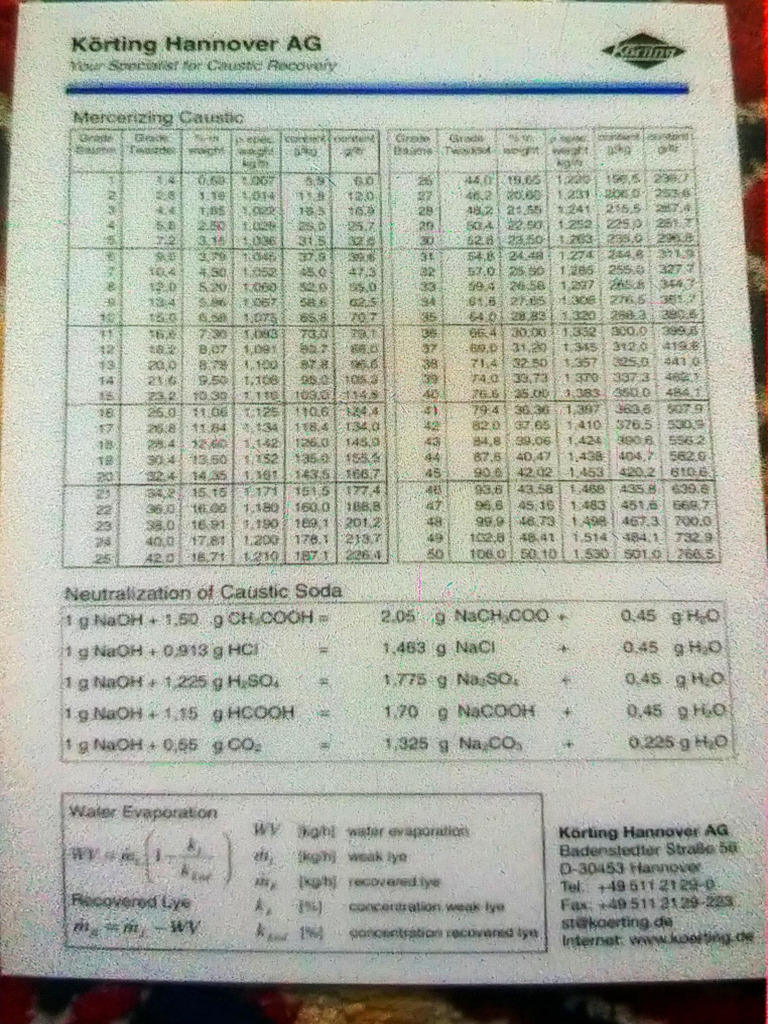 Körting Hannover AG
Your Specialist for Caustic Recovery
Körting
Mercerizing Caustic
Grade Baumé Grade Twaddel % in weight ρ spec. weight kg/ltr content g/kg content g/ltr
Grade Baumé Grade Twaddel % in weight ρ spec. weight kg/ltr content g/kg content g/ltr
1 1,4 1,007 5,9 6,0 26 44,0 19,65 1,220 196,5 239,7
2 2,8 1,18 1,014 11,8 12,0 27 46,2 20,60 1,231 206,0 253,6
3 4,4 1,65 1,022 16,5 16,9 28 48,2 21,55 1,241 215,5 267,4
4 5,8 2,50 1,029 25,0 25,7 29 50,4 22,50 1,252 225,0 281,7
5 7,2 3,15 1,036 31,5 32,6 30 52,6 23,50 1,263 235,0 296,8
6 3,79 1,045 37,9 39,6 31 54,8 24,48 1,274 244,8 311,9
7 10,4 4,50 1,052 45,0 47,3 32 57,0 25,50 1,285 255,0 327,7
8 12,0 5,20 1,060 52,0 55,0 33 59,4 26,58 1,297 265,8 344,7
9 13,4 5,86 1,067 58,6 62,5 34 61,6 27,65 1,308 276,5 361,7
10 15,0 6,58 1,075 65,8 70,7 35 64,0 28,83 1,320 288,3 380,6
11 16,6 7,30 1,083 73,0 79,1 36 66,4 30,00 1,332 300,0 399,6
12 18,2 8,07 1,091 80,7 88,0 37 69,0 31,20 1,345 312,0 419,6
13 20,0 8,78 1,100 87,8 96,6 38 71,4 32,50 1,357 325,0 441,0
14 21,6 9,50 1,108 95,0 105,3 39 74,0 33,73 1,370 337,3 462,1
15 23,2 10,30 1,116 103,0 114,9 40 76,6 35,00 1,383 350,0 484,1
16 25,0 11,06 1,125 110,6 124,4 41 79,4 36,36 1,397 363,6 507,9
17 26,8 11,84 1,134 118,4 134,0 42 82,0 37,65 1,410 376,5 530,9
18 28,4 12,60 1,142 126,0 43 84,8 39,06 1,424 390,6 556,2
19 30,4 13,50 1,152 135,0 155,5 44 87,6 40,47 1,438 404,7 582,0
20 32,4 14,35 1,161 143,5 166,7 45 90,6 42,02 1,453 420,2 610,6
21 34,2 15,15 1,171 151,5 177,4 46 93,6 43,58 1,468 435,8 639,8
22 36,0 16,00 1,180 160,0 188,8 47 96,6 45,16 1,483 451,6 669,7
23 38,0 16,91 1,190 169,1 201,2 48 99,9 46,73 1,498 467,3 700,0
24 40,0 17,81 1,200 178,1 213,7 49 102,8 48,41 1,514 484,1 732,9
25 42,0 18,71 1,210 187,1 226,4 50 106,0 50,10 1,530 501,0 766,5
Neutralization of Caustic Soda
1 g NaOH + 1,50 g CH₃COOH = 2,05 g NaCH₃COO + 0,45 g H₂O
1 g NaOH + 0,913 g HCl = 1,463 g NaCl + 0,45 g H₂O
1 g NaOH + 1,225 g H₂SO₄ = 1,775 g Na₂SO₄ + 0,45 g H₂O
1 g NaOH + 1,15 g HCOOH = 1,70 g NaCOOH + 0,45 g H₂O
1 g NaOH + 0,55 g CO₂ = 1,325 g Na₂CO₃ + 0,225 g H₂O
Water Evaporation
WV = ṁₗ (1 - kₗ / k)
WV [kg/h] water evaporation
ṁₗ [kg/h] weak lye
ṁ [kg/h] recovered lye
Recovered Lye
kₗ [%] concentration weak lye
ṁ = ṁₗ - WV
k [%] concentration recovered lye
Körting Hannover AG
Badenstedter Straße 56
D-30453 Hannover
Tel.: +49 511 2129-0
Fax: +49 511 2129-223
st@koerting.de
Internet: www.koerting.de